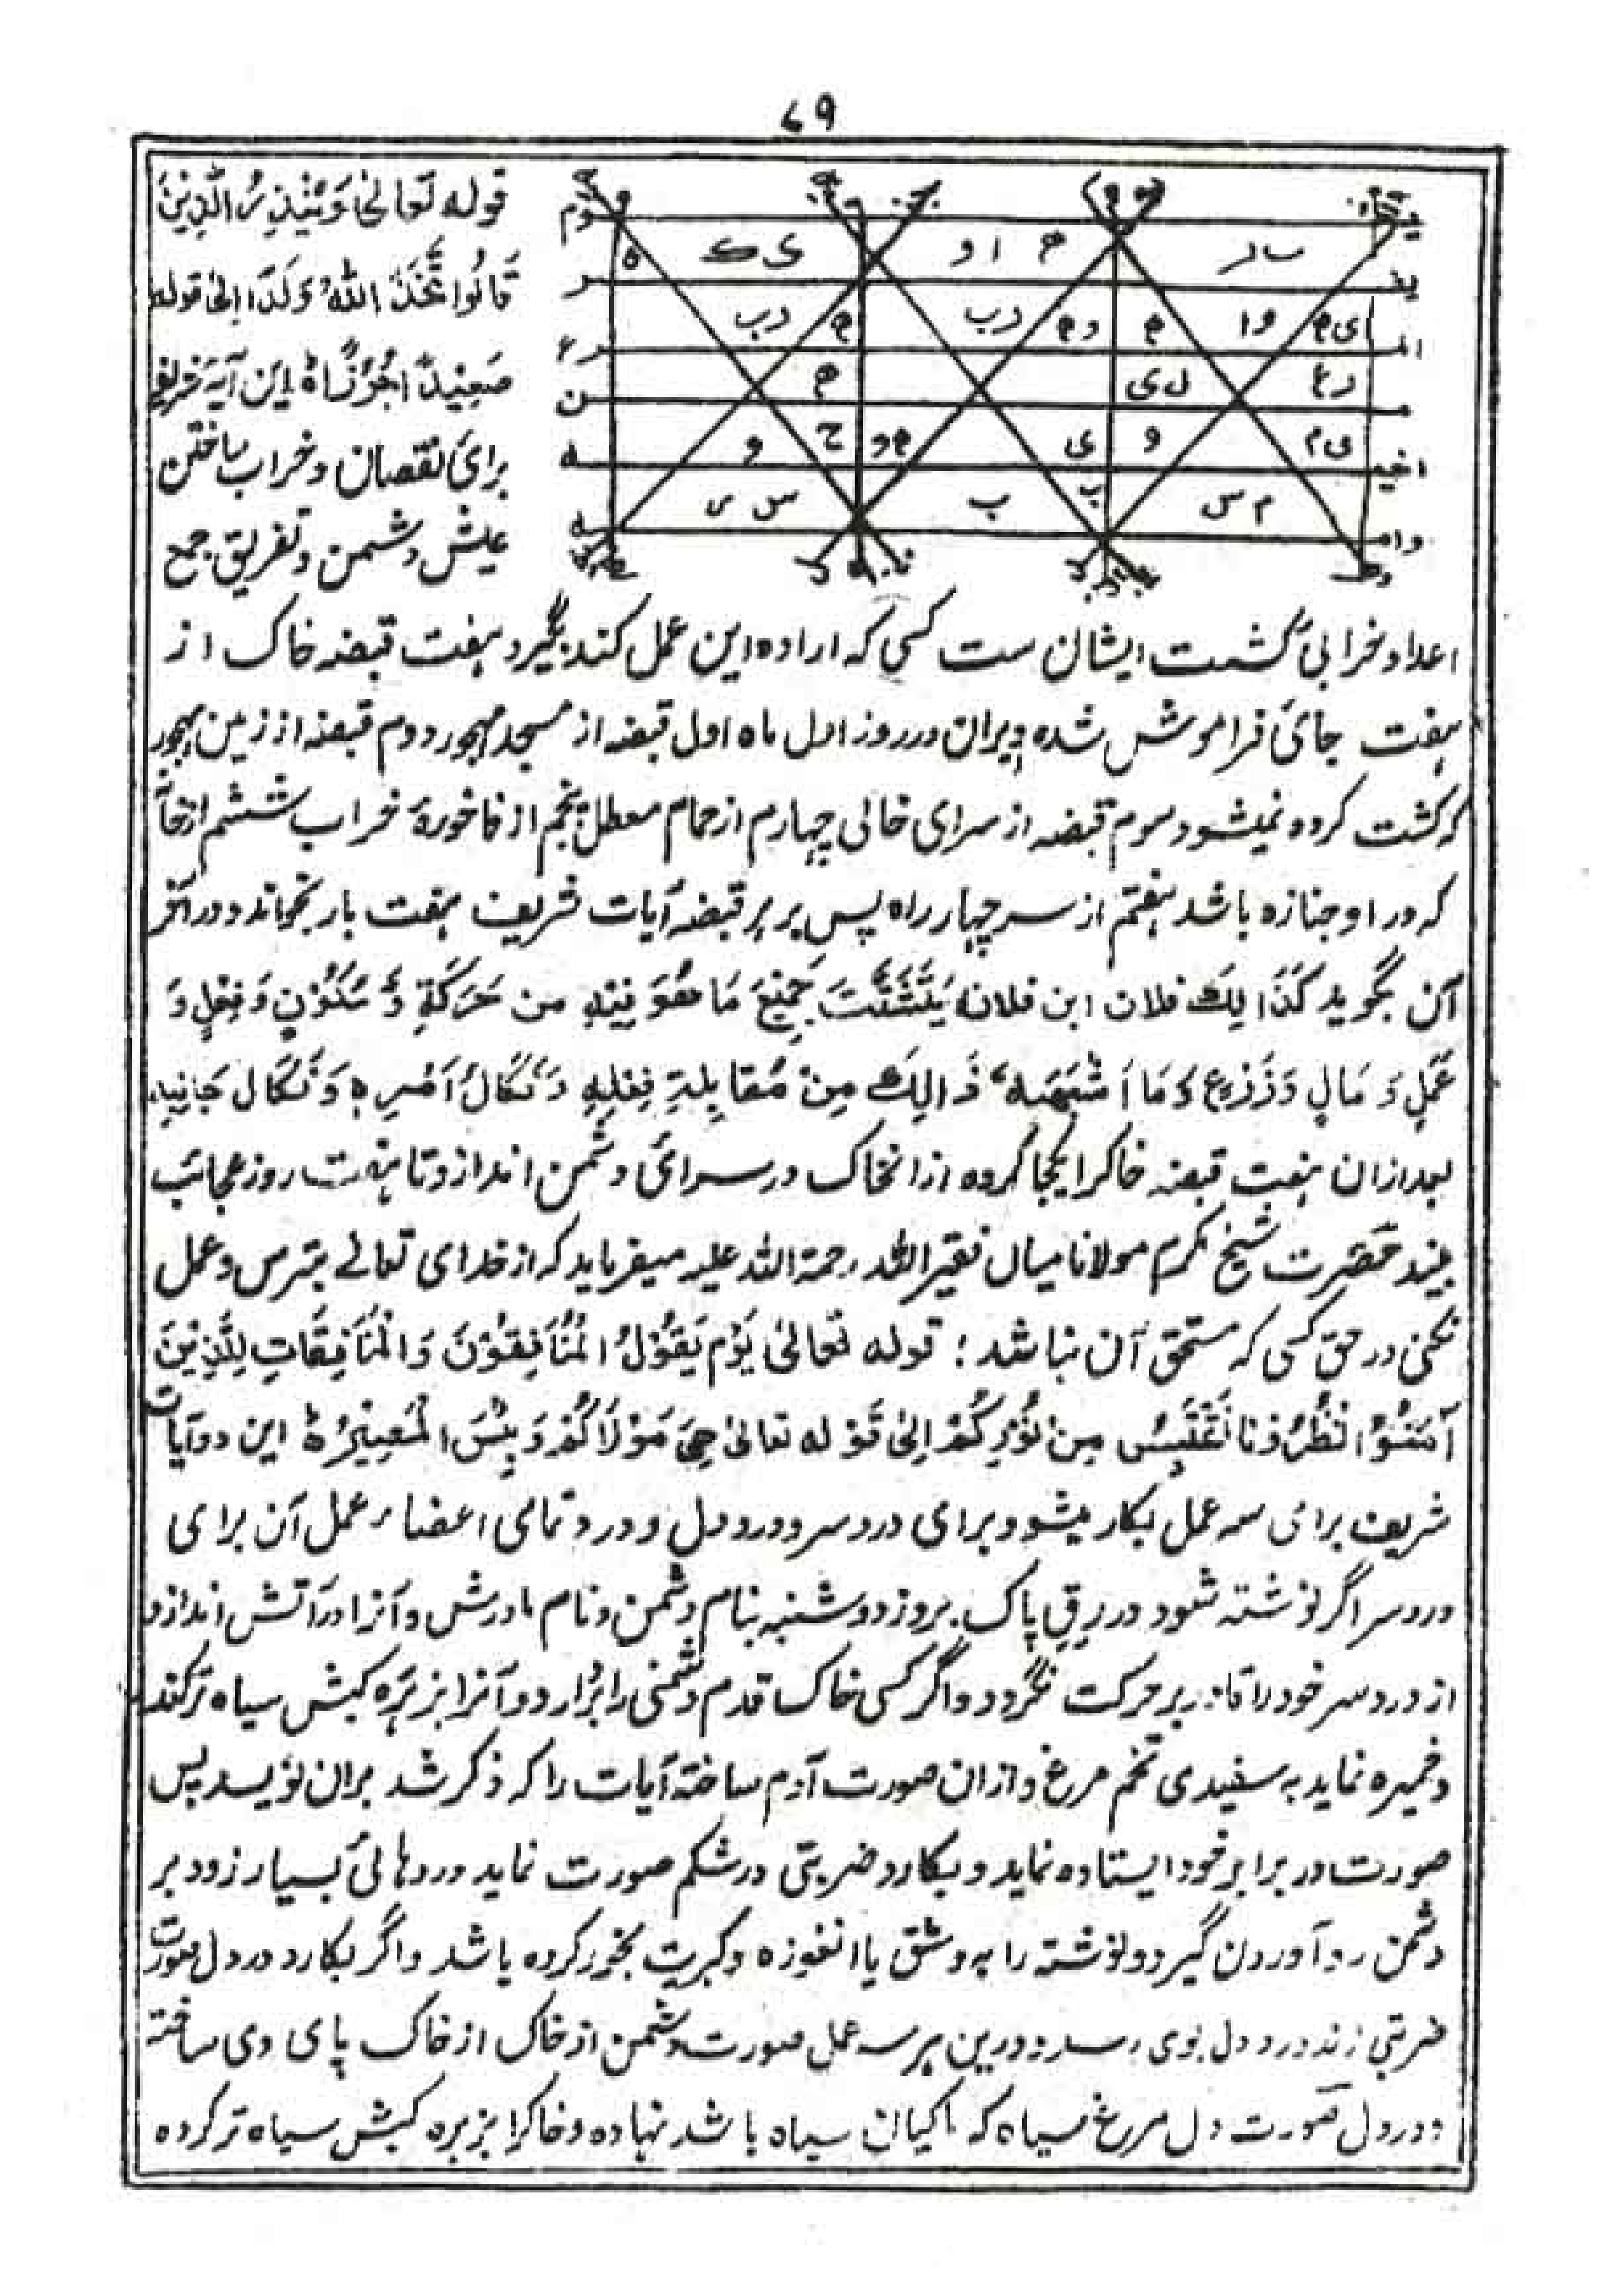 ۷۹
قوله تعالیٰ وَیُنْذِرَ الَّذِیْنَ
قَالُوا اتَّخَذَ اللهُ وَلَدًا الیٰ قوله
صَعِیْدًا جُرُزًا ه این آیه شریفه
برای نقصان و خراب ساختن
عیش دشمن و تفریق جمع
اعدا و خرابیٔ کشت ایشان ست کسی که اراده این عمل کند بگیرد هفت قبضه خاک از
هفت جائی فراموش شده ویران در روز اول ماه اول قبضه از مسجد مهجور دوم قبضه از زمین مهجور
که کشت کرده نمیشود سوم قبضه از سرای خالی چهارم از حمام معطل پنجم از فاخورهٔ خراب ششم از خا
که در او جنازه باشد هفتم از سر چهار راه پس بر هر قبضه آیات شریف هفت بار بخواند و در آخر
آن بگوید کَذَالِكَ فلان ابن فلانه یَتَشَتَّتَ جَمِیْعَ مَا هُوَ فِیْهِ مِن حَرَكَةٍ وَ سُكُوْنٍ وَ فِعْلٍ وَ
عَمَلٍ وَ مَالٍ وَ زَرْعٍ وَ مَا اَشْبَهَهٗ ذَالِكَ مِنْ مُقَابِلَةِ فِعْلِهِ وَ نَكَالَ اَمْرِهٖ وَ نَكَال جَانِبِهٖ
بعد ازان هفت قبضه خاکرا یکجا کرده از انخاک در سرائی دشمن اندازد تا هفت روز عجائب
بیند حضرت شیخ مکرم مولانا میاں فقیر الله رحمة الله علیه میفرماید که از خدای تعالے بترس و عمل
نکنی در حق کسی که مستحق آن نباشد ؛ قوله تعالیٰ یَوْمَ یَقُوْلُ الْمُنَافِقُوْنَ وَالْمُنَافِقَاتِ لِلَّذِیْنَ
آمَنُوْا انْظُرُوْنَا نَقْتَبِسْ مِنْ نُّوْرِكُمْ اِلیٰ قَوْله تعالیٰ هِیَ مَوْلَاكُمْ وَ بِئْسَ الْمَصِیْرُ ه این دو آیات
شریف برای سه عمل بکار میشود برای درد سر و درد دل و درد تمامی اعضاء عمل آن برای
درد سر اگر نوشته شود در رقِ پاک بروز دوشنبه بنام دشمن و نام مادرش و آنرا در آتش اندازد
از درد سر خود را قادر بر حرکت نگردد و اگر کسی خاک قدم دشمنی را بردارد و آنرا بزهره کبش سیاه تر کند
و خمیره نماید به سفیدی تخم مرغ و ازان صورت آدم ساخته آیات را که ذکر شد بران نویسد پس
صورت در برابر خود ایستاده نماید و بکارد ضربتی در شکم صورت نماید دردهائی بسیار زود بر
دشمن رو آوردن گیرد و نوشته را به وشق یا انغوزه و کبریت بخور کرده باشد و اگر بکارد در دل صورت
ضربتی زند درد دل بوی رسد و درین هر سه عمل صورت دشمن از خاک از خاک پای وی ساخته
و در دل صورت دل مرغ سیاه که ماکیان سیاه باشد نهاده و خاکرا بزهره کبش سیاه تر کرده